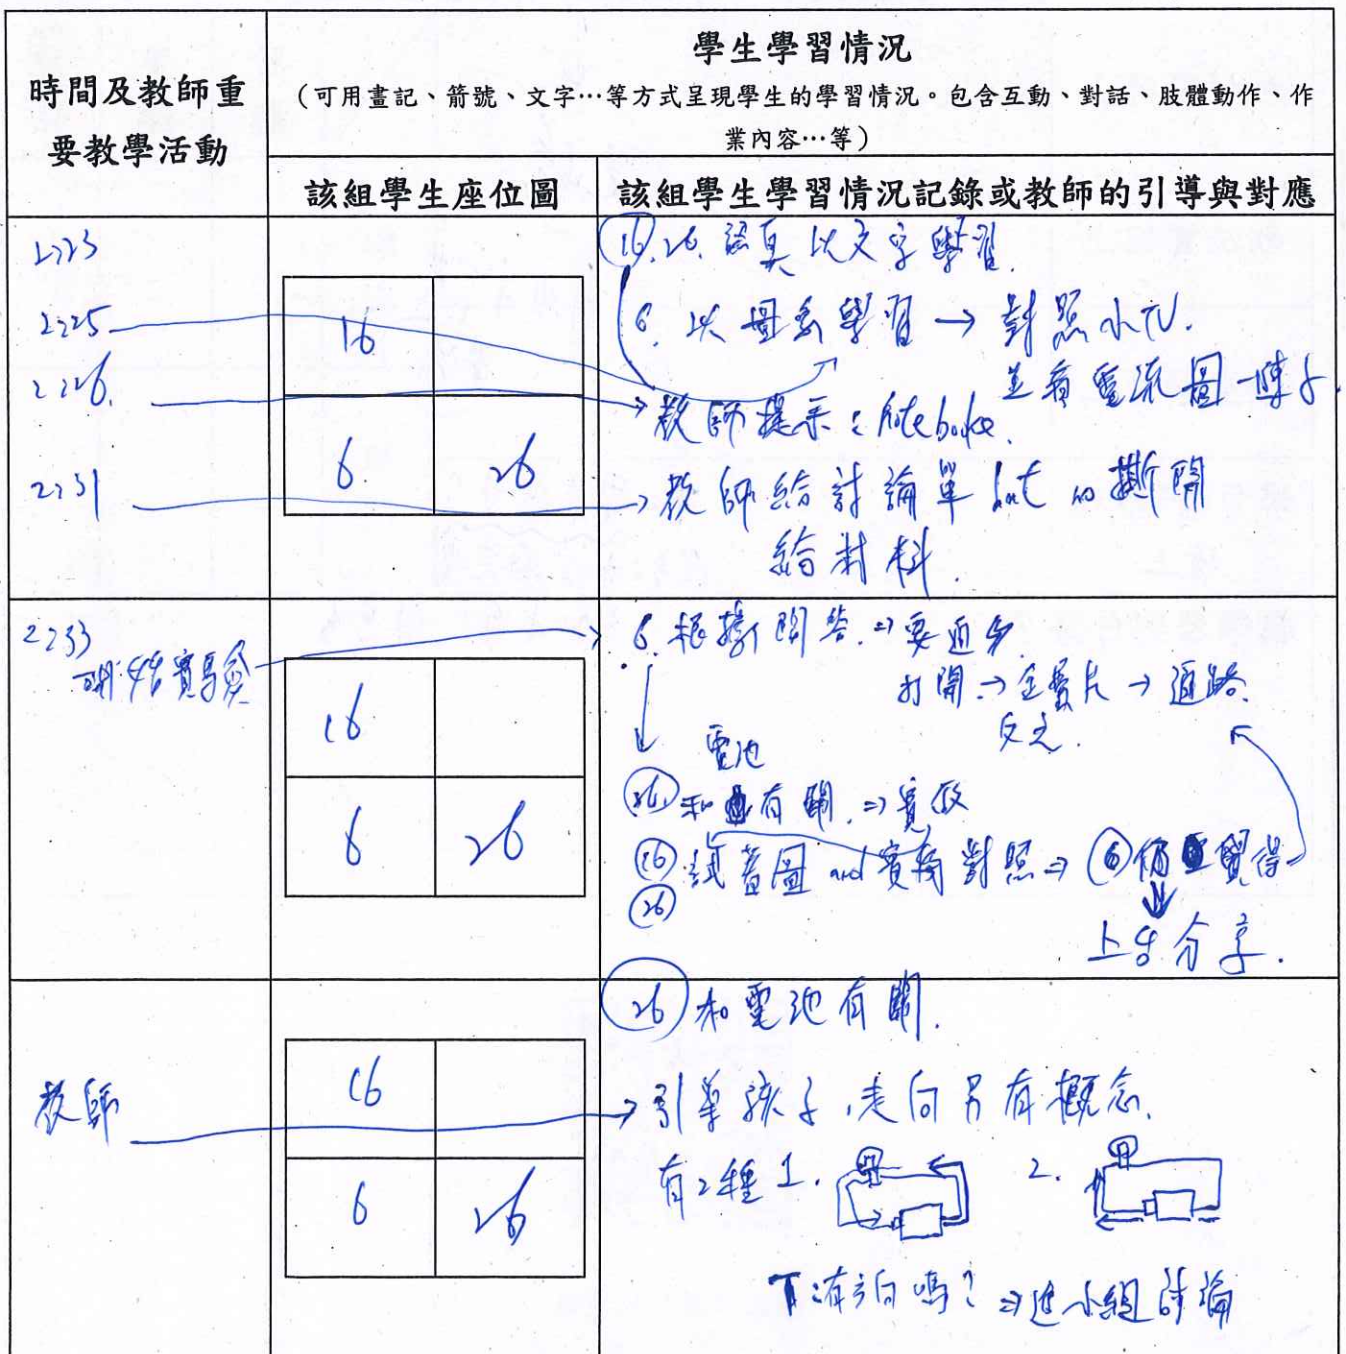 時間及教師重
要教學活動
學生學習情況
（可用畫記、箭號、文字…等方式呈現學生的學習情況。包含互動、對話、肢體動作、作
業內容…等）
該組學生座位圖
該組學生學習情況記錄或教師的引導與對應
2:23
2:25
2:26
2:31
16
6
26
16.26. 認真以文字學習.
6. 以圖畫學習→對照
並看電流圖一陣子.
教師提示:
教師給討論單 but no 撕開
給材料.
2:33
開始實驗
16
6
26
6. 根據開
打開→金屬片→通路.
反之.
電池
和 有關.⇒
16 試著圖 and 實物對照⇒ 6 仍 覺得
26
上台分享.
教師
16
6
26
26 和電池有關.
引導孩子,走向另有概念.
有2種 1. 2.
有方向嗎?⇒進小組討論